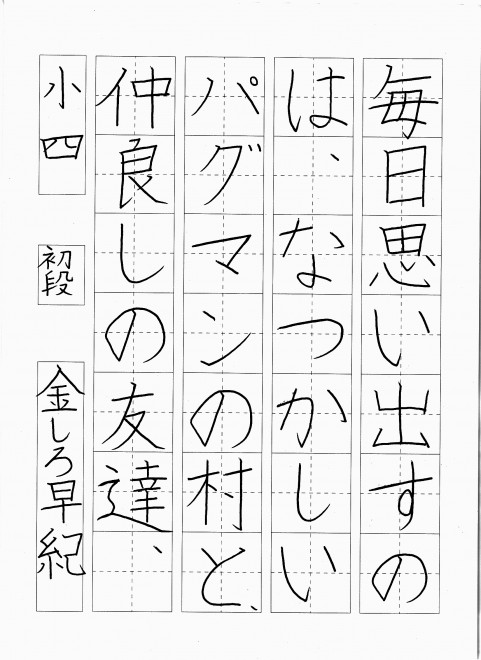 毎日思い出すの
は、なつかしい
パグマンの村と、
仲良しの友達、
小四
初段
金しろ早紀